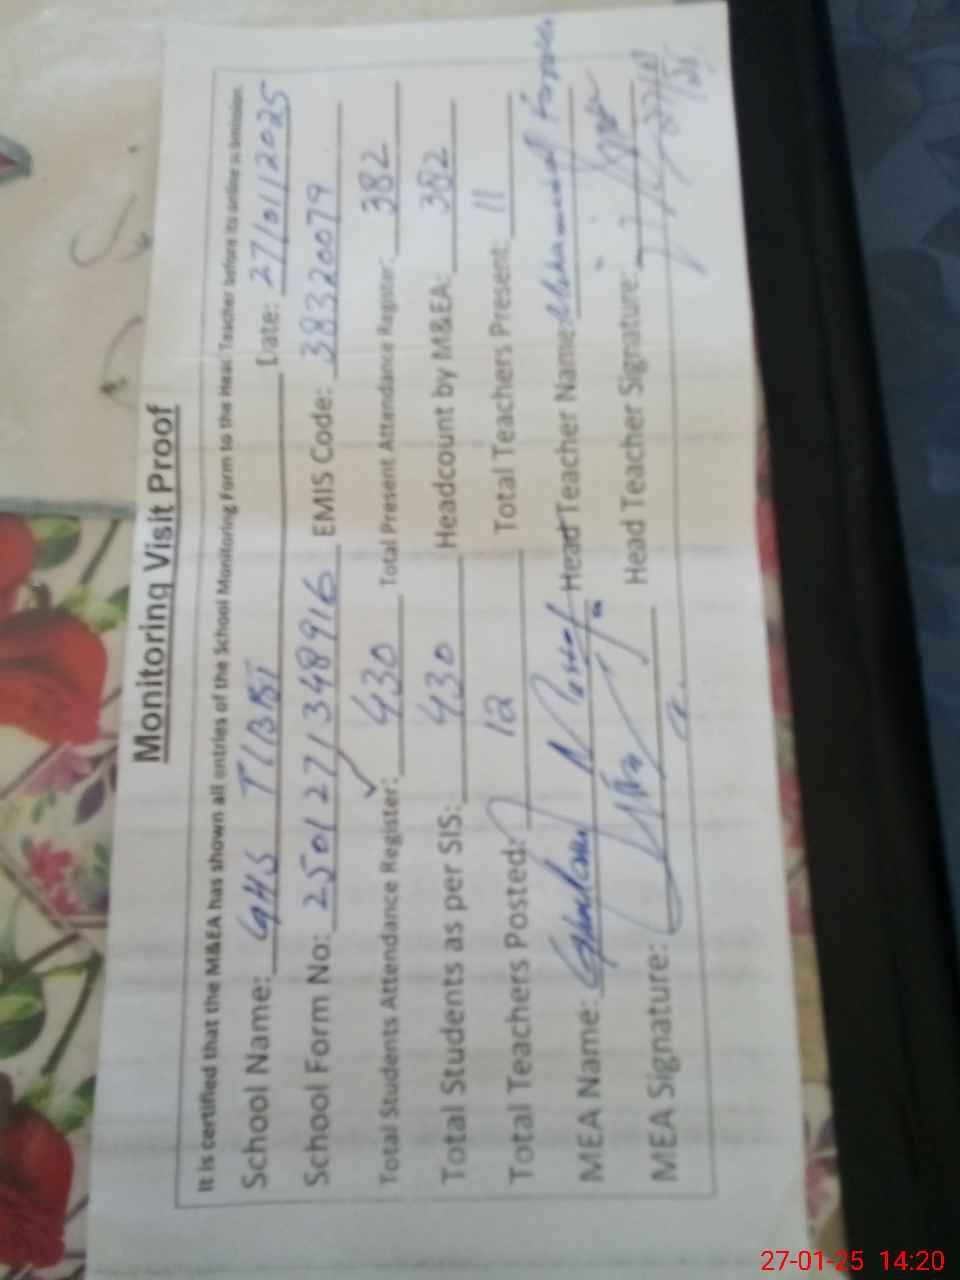 Monitoring Visit Proof
It is certified that the M&EA has shown all entries of the School Monitoring Form to the Head Teacher before its online submission.
School Name: GHS TIBBI Date: 27/01/2025
School Form No: 2501271348916 EMIS Code: 38320079
Total Students Attendance Register: 430 Total Present Attendance Register: 382
Total Students as per SIS: 430 Headcount by M&EA: 382
Total Teachers Posted: 12 Total Teachers Present: 11
MEA Name: Ghulam Head Teacher Name: Muhammad
MEA Signature: Head Teacher Signature:
27-01-25 14:20